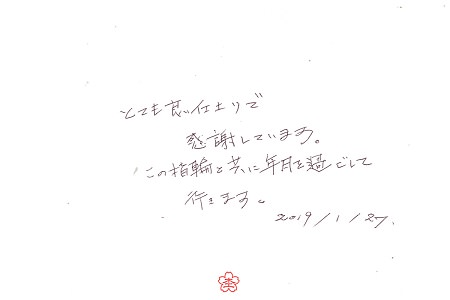 とても良い仕上りで
感謝しています。
この指輪と共に年月を過ごして
行きます。
2019/1/27.